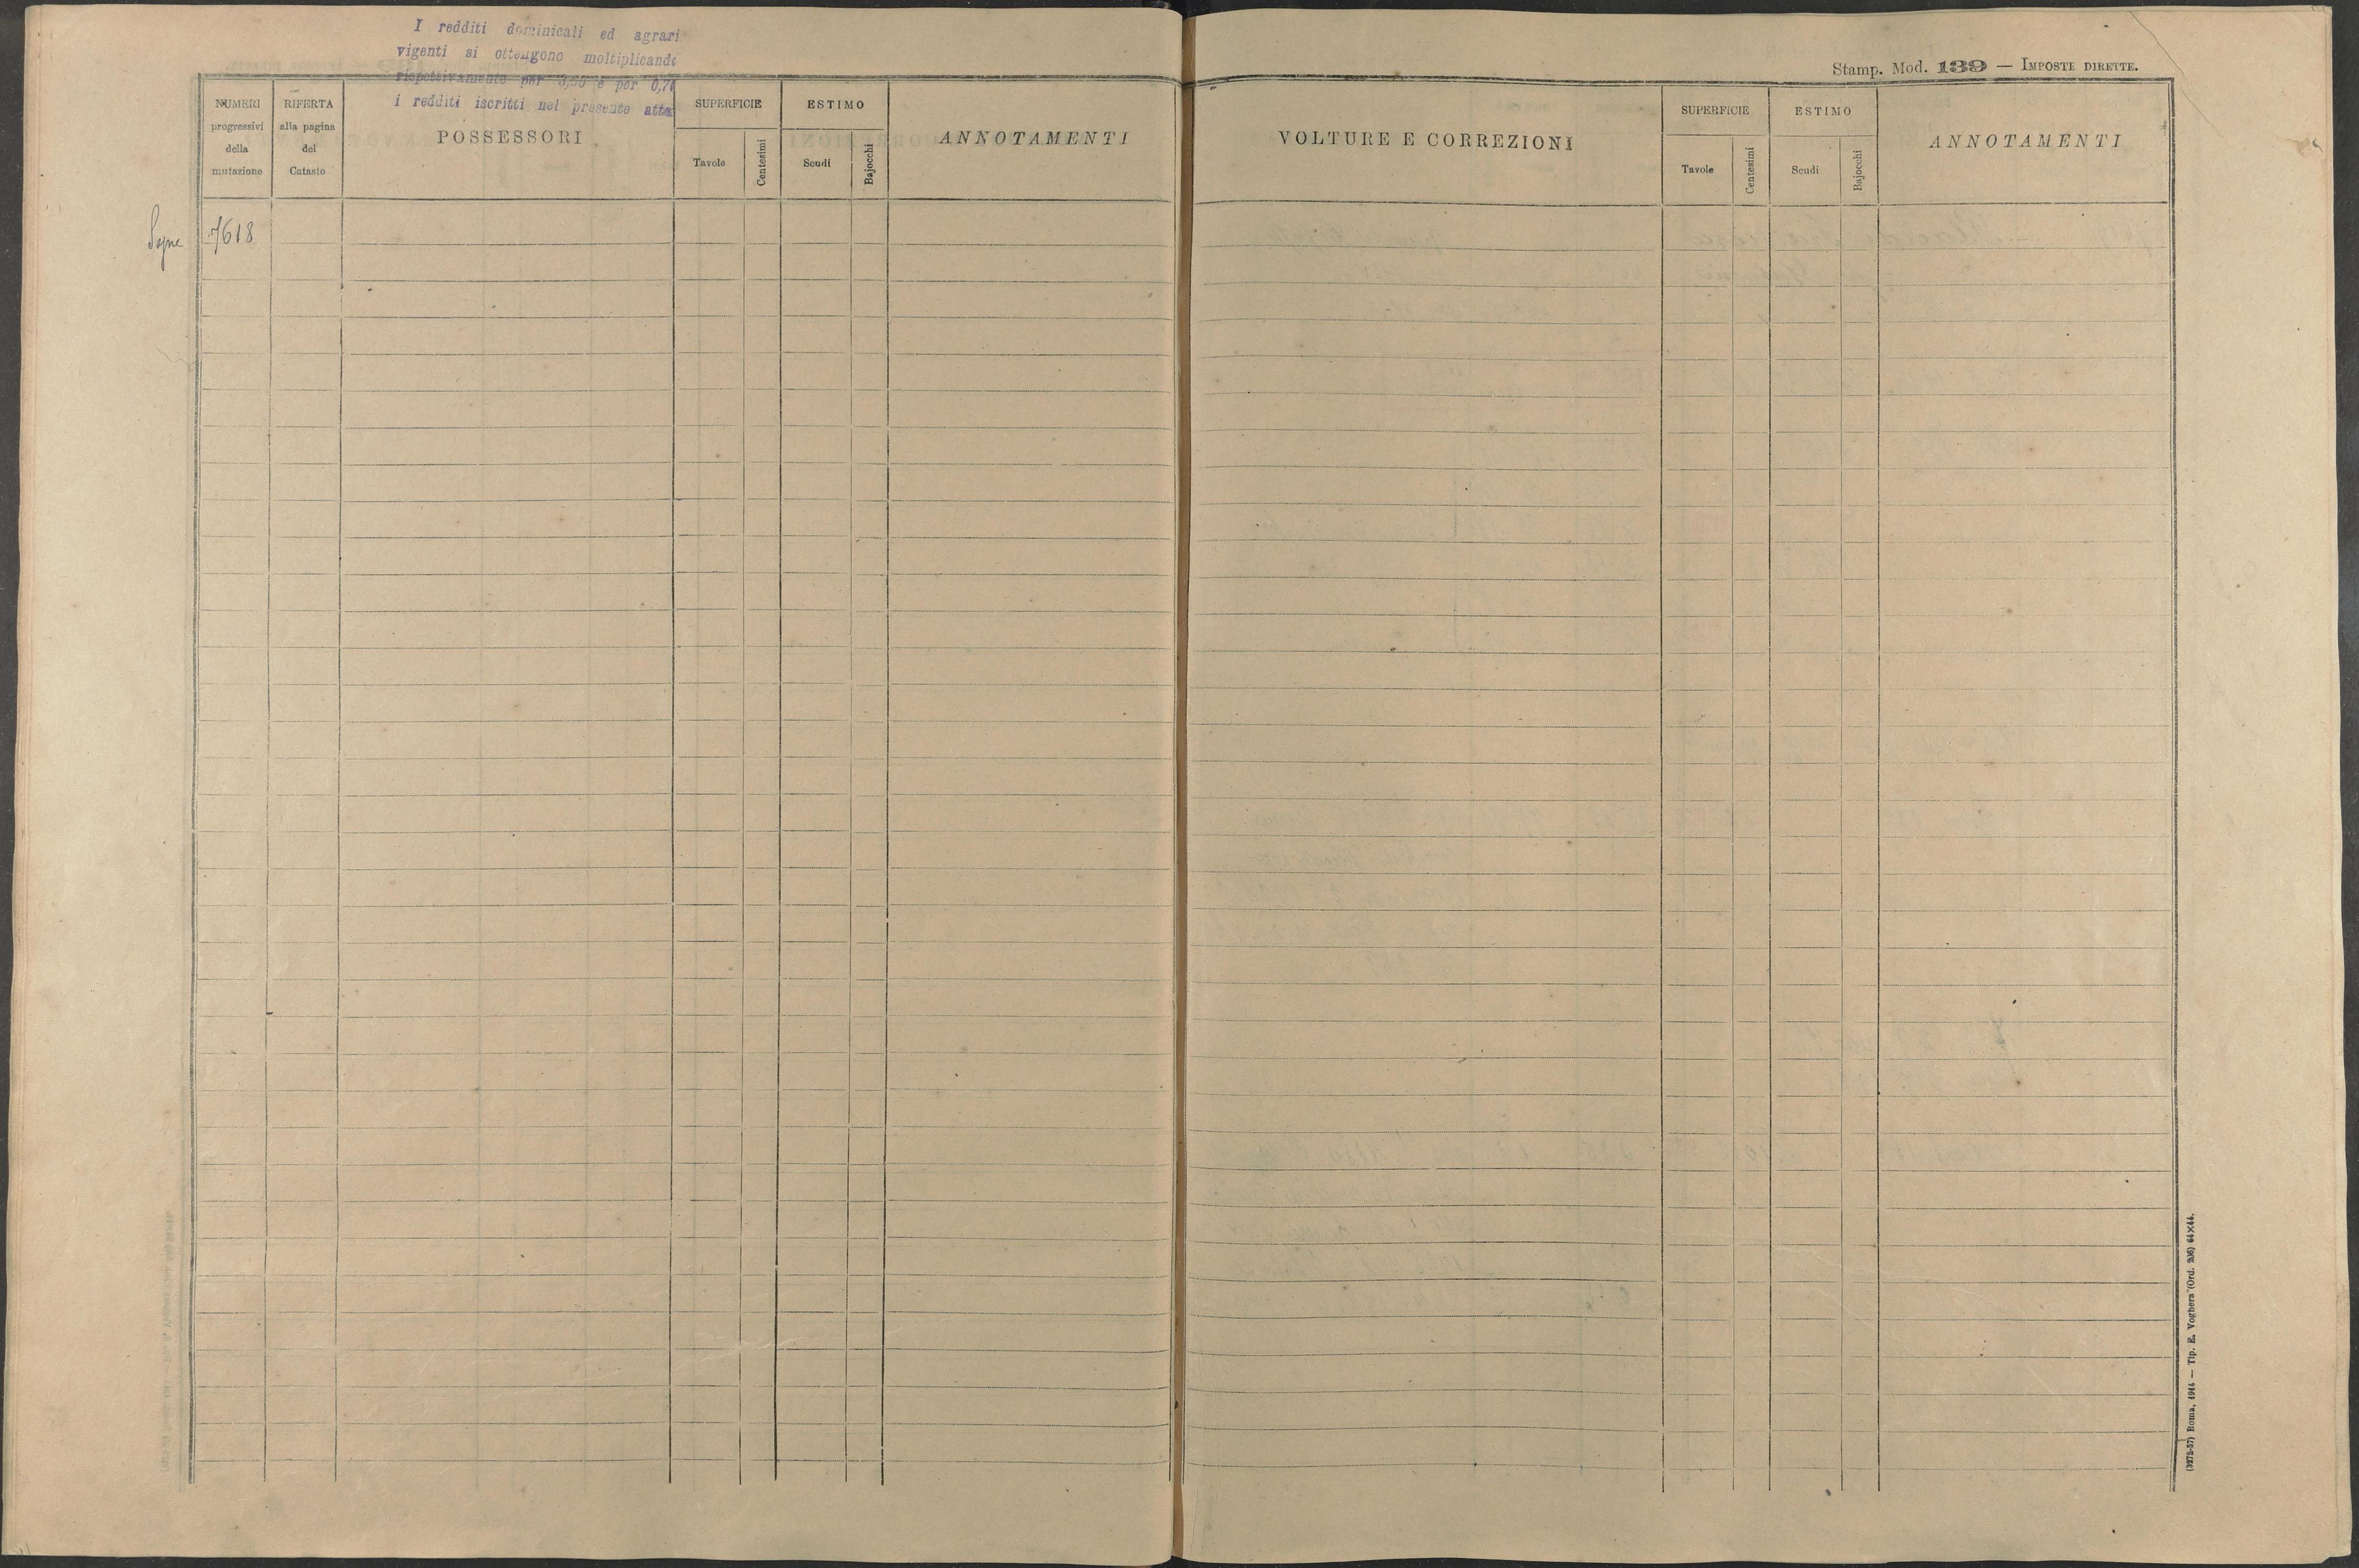 I redditi dominicali ed agrari
vigenti si ottengono moltiplicando
rispettivamente per e per
i redditi iscritti nel presente atto
NUMERI
progressivi
della
mutazione
RIFERTA
alla pagina
del
Catasto
POSSESSORI
SUPERFICIE
Tavole
Centesimi
ESTIMO
Scudi
Bajocchi
ANNOTAMENTI
Segue 7618
Stamp. Mod. 139 — IMPOSTE DIRETTE.
VOLTURE E CORREZIONI
SUPERFICIE
Tavole
Centesimi
ESTIMO
Scudi
Bajocchi
ANNOTAMENTI
Roma, 1914 — Tip. E. Voghera (Ord. 206) 64×44.